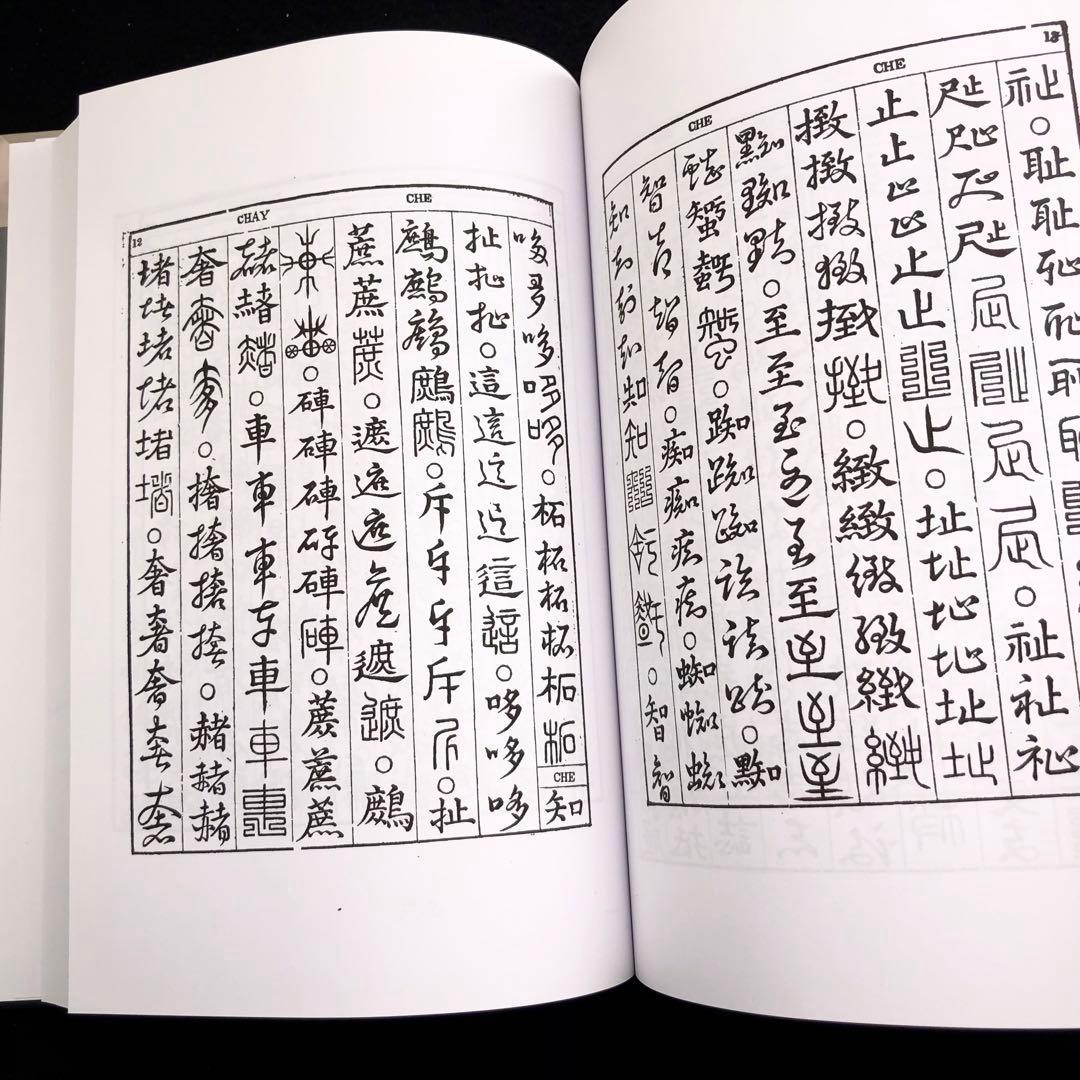 12
CHAY
CHE
堵堵堵堵堵堵○奢奢奢奢奢
奢奢奢○撦撦撦撦○赭赭赭
赭赭赭○車車車車車車車
車車○硨硨硨硨硨硨○蔗蔗蔗
蔗蔗蔗○遮遮遮遮遮遮○鷓
鷓鷓鷓鷓鷓○斥斥斥斥斥○扯
扯扯扯○這這這這這這○哆哆哆
哆哆哆哆哆○柘柘柘柘柘柘
CHE
知
CHE
CHE
13
知知知知知知知知知○智智
智智智智○痴痴痴痴○蜘蜘蜘
○踟踟踟
○至至至至至至至至至
㨖㨖㨖㨖㨖㨖○緻緻緻緻緻緻
止止止止止止止止○址址址址址址
咫咫咫咫咫咫咫咫○祉祉祉
祉○耻耻耻耻耻耻